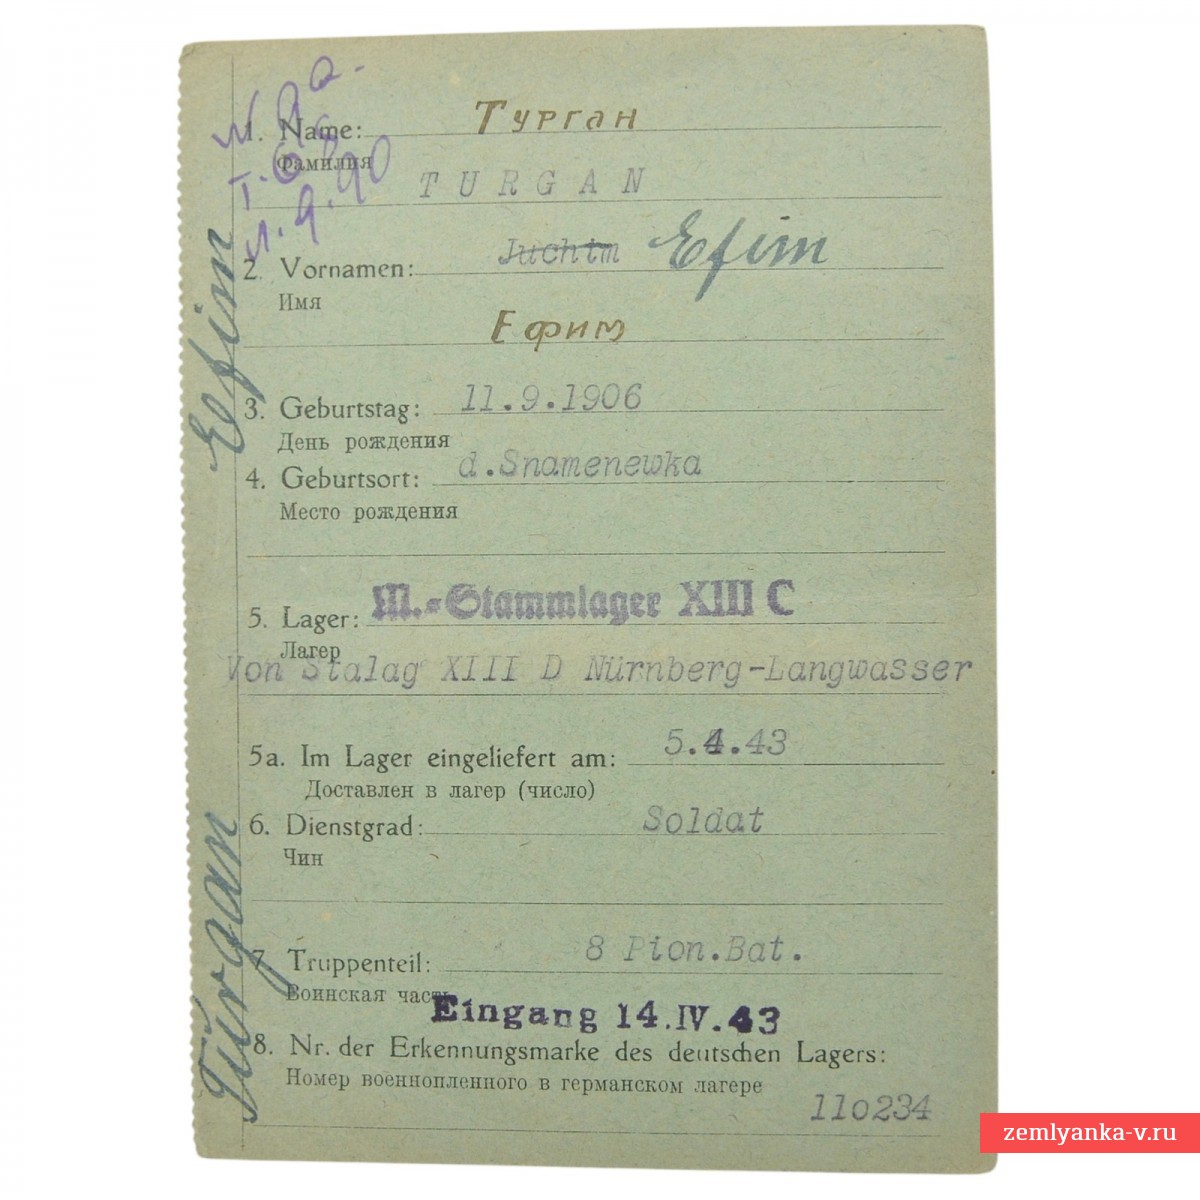 1. Name: Турган
Фамилия
TURGAN
2. Vornamen: Juchim Efim
Имя
Ефим
3. Geburtstag: 11.9.1906
День рождения
4. Geburtsort: d.Snamenewka
Место рождения
5. Lager: M.-Stammlager XIII C
Лагер
Von Stalag XIII D Nürnberg-Langwasser
5a. Im Lager eingeliefert am: 5.4.43
Доставлен в лагер (число)
6. Dienstgrad: Soldat
Чин
7. Truppenteil: 8 Pion.Bat.
Воинская часть
Eingang 14.IV.43
8. Nr. der Erkennungsmarke des deutschen Lagers:
Номер военнопленного в германском лагере
110234
Turgan Efim
zemlyanka-v.ru